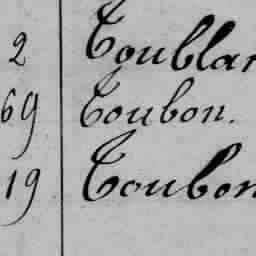 2 Toublan
69 Toubon.
19 Toubon